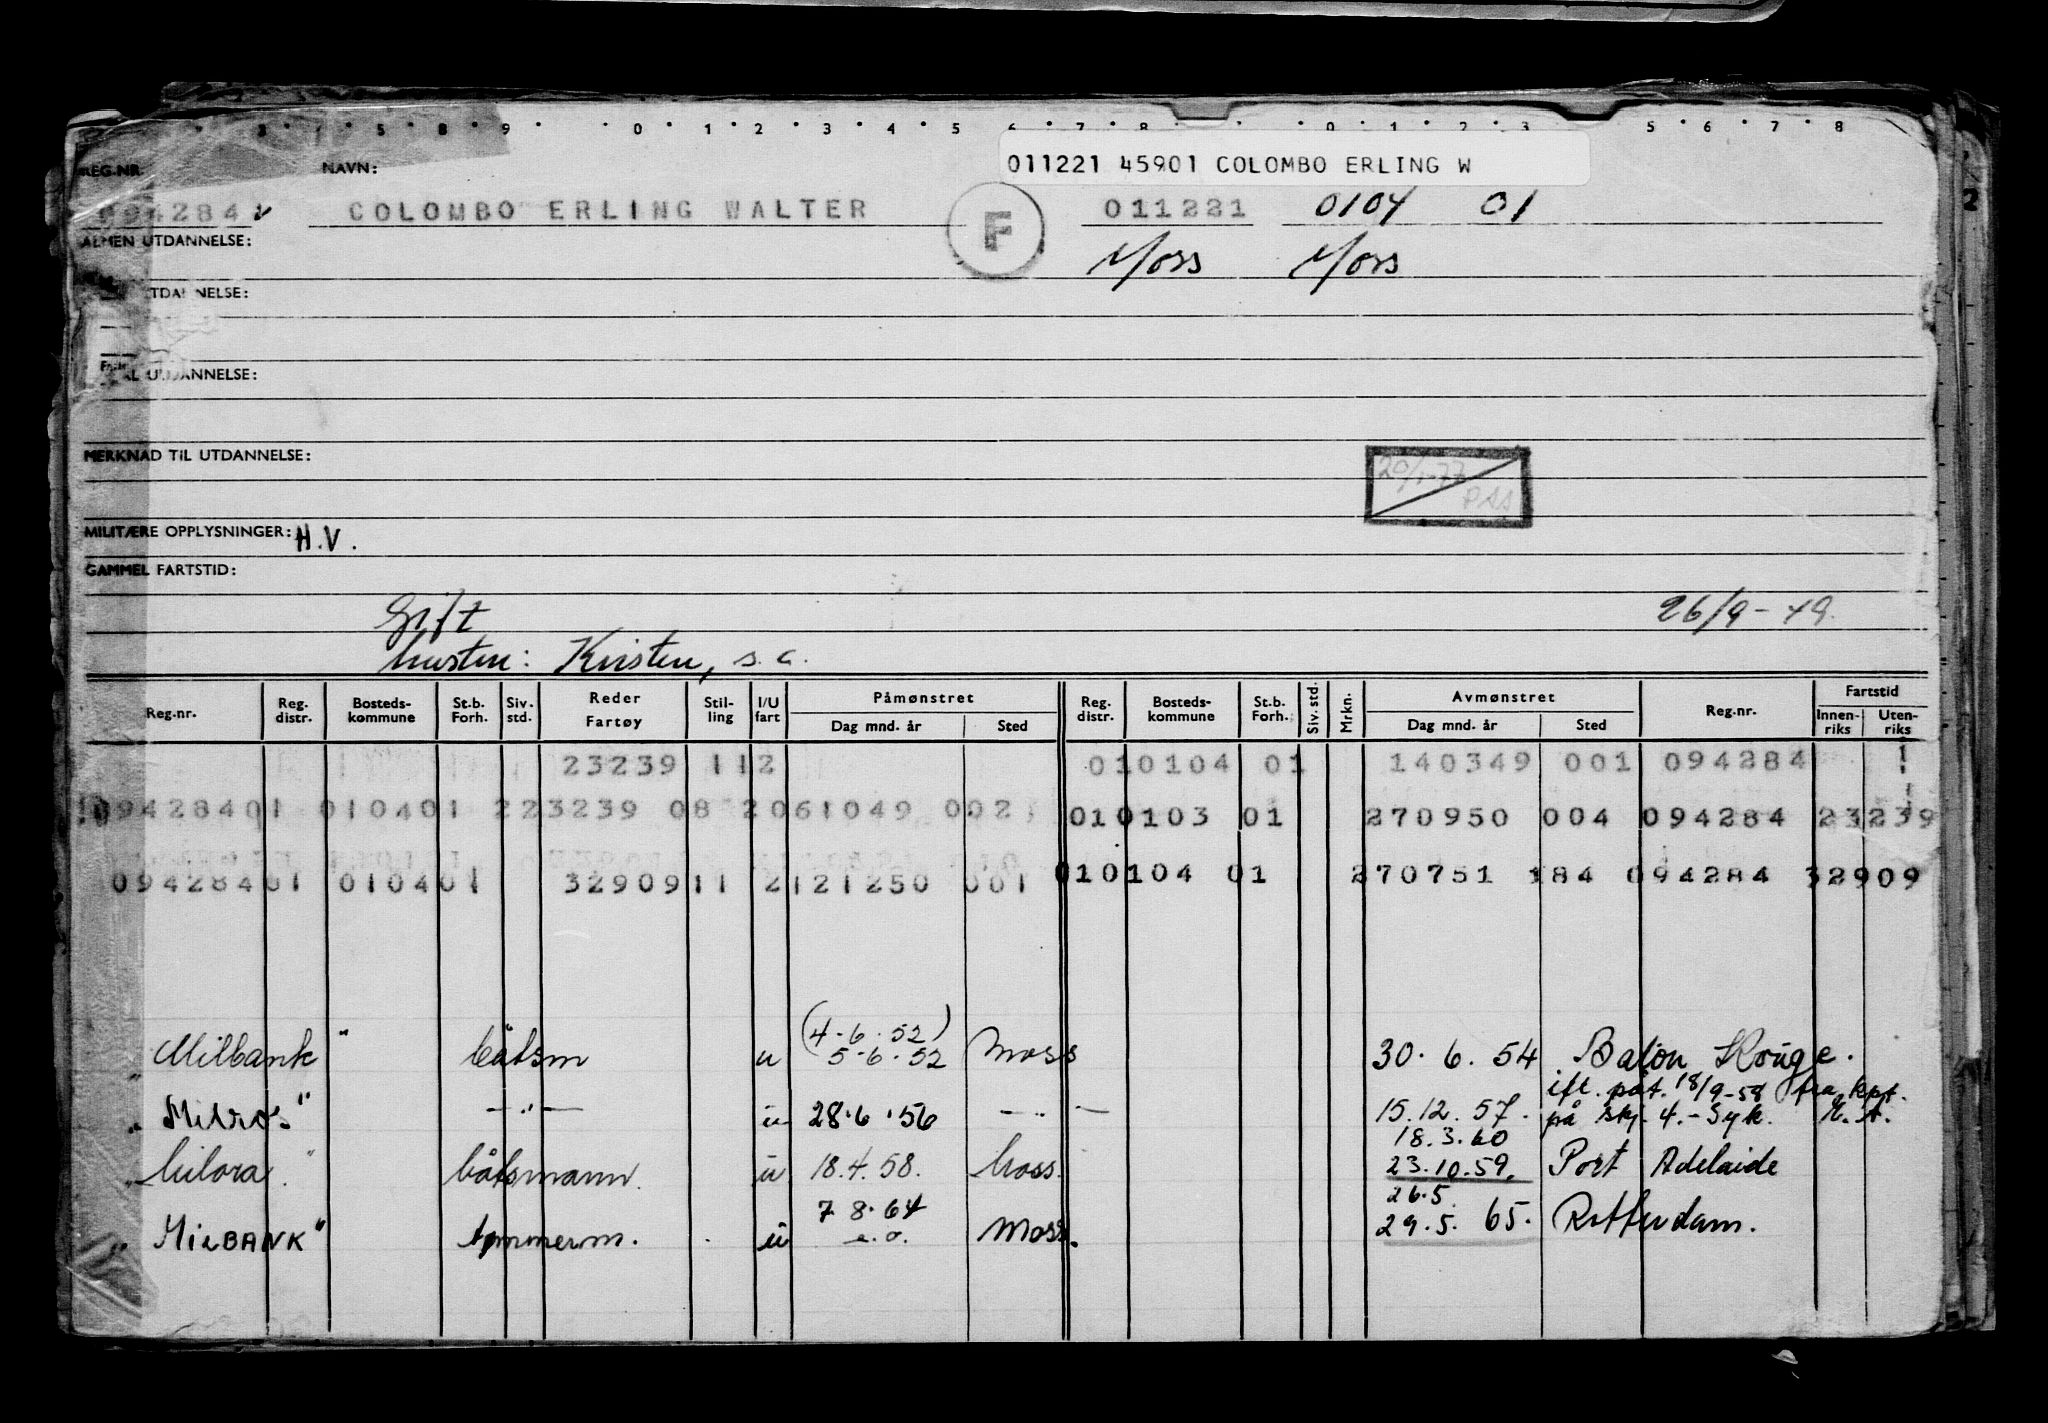 3 5 8 9 0 1 2 3 4 5 6 7 8 0 1 2 3 5 6 7 8
011221 45901 COLOMBO ERLING W
REG.NR. NAVN:
094284 COLOMBO ERLING WALTER F 011221 0104 01
ALMEN UTDANNELSE: Moss Moss
UTDANNELSE:
UTDANNELSE:
MERKNAD TIL UTDANNELSE:
20/1-77
MILITÆRE OPPLYSNINGER: H.V.
GAMMEL FARTSTID:
Gift 26/9-49.
hustru: Kirsten, s.a.
Reg.nr. Reg. distr. Bosteds-kommune St.b. Forh. Siv. std. Reder Fartøy Stil-ling I/U fart Påmønstret Dag mnd. år Sted Reg. distr. Bosteds-kommune St.b. Forh. Siv. std. Mrkn. Avmønstret Dag mnd. år Sted Reg.nr. Fartstid Innen-riks Uten-riks
23239 112 010104 01 140349 001 094284
09428401 010401 223239 08 2061049 002 010103 01 270950 004 094284 23239
09428401 010401 3290911 2121250 001 010104 01 270751 184 094284 32909
(4-6.52)
"Milbank" båtsm u 5-6.52 Moss 30.6.54 Baton Rouge.
ifl. påt. 18/9-58 fra kpt.
"Milros" —"— u 28.6.56 —"— 15.12.57. på skj. 4.-Syk.
18.3.60
"Milora" båtsmann u 18.4.58. Moss. 23.10.59. Port Adelaide
7.8.64 26.5.
"MILBANK" tømmerm. u Moss. 29.5.65. Rotterdam.